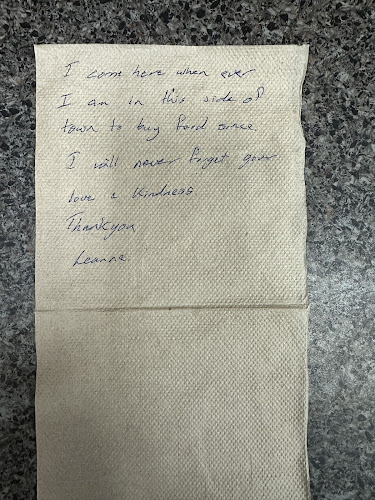 I come here when ever
I am in this side of
town to buy food since.
I will never forget your
love & Kindness
Thankyou
Leanne.